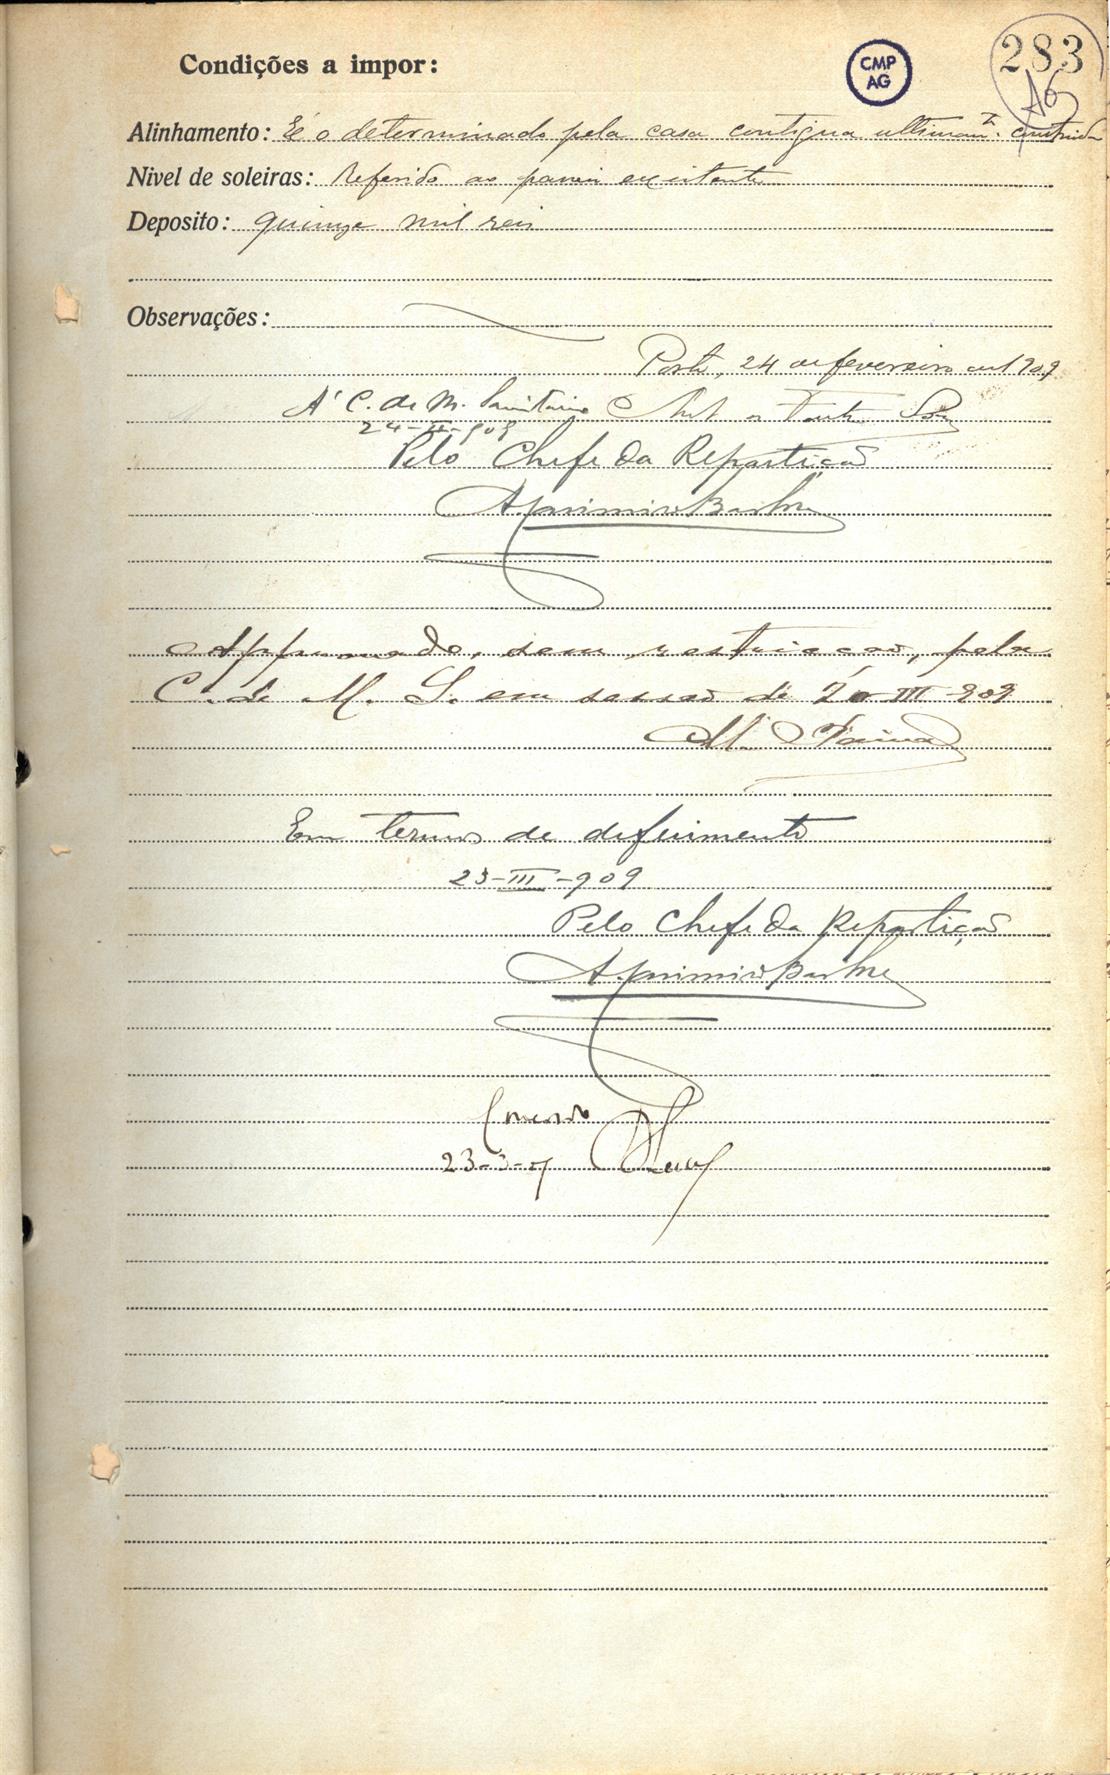 283
CMP
AG
Condições a impor:
Alinhamento: É o determinado pela casa contigua ultimamte. construida
Nivel de soleiras: Referido ao passeio existente
Deposito: quinze mil reis
Observações:
Porto, 24 de fevereiro de 1909
A' C. de M. Sanitarios
24-II-909
Pelo Chefe da Repartição
Approvado, sem restricção, pela
C. de M. S. em sessão de 20-III-909
Em termos de deferimento
23-III-909
Pelo Chefe da Repartição
23-3-9